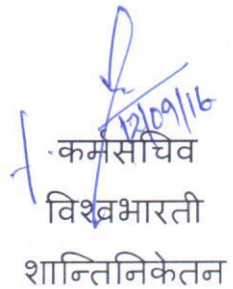 12/09/16
कर्मसचिव
विश्वभारती
शान्तिनिकेतन